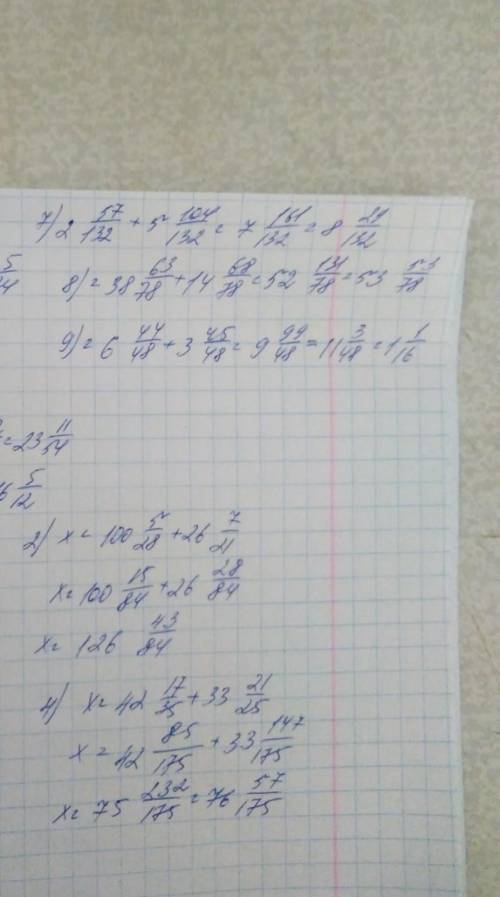 7) 2 57/132 + 5 104/132 = 7 161/132 = 8 29/132
8) = 38 63/78 + 14 68/78 = 52 131/78 = 53 53/78
9) = 6 44/48 + 3 45/48 = 9 99/48 = 11 3/48 = 1 1/16
= 23 11/54
5/12
2) x = 100 5/28 + 26 7/21
x = 100 15/84 + 26 28/84
x = 126 43/84
4) x = 42 17/35 + 33 21/25
x = 42 85/175 + 33 147/175
x = 75 232/175 = 76 57/175